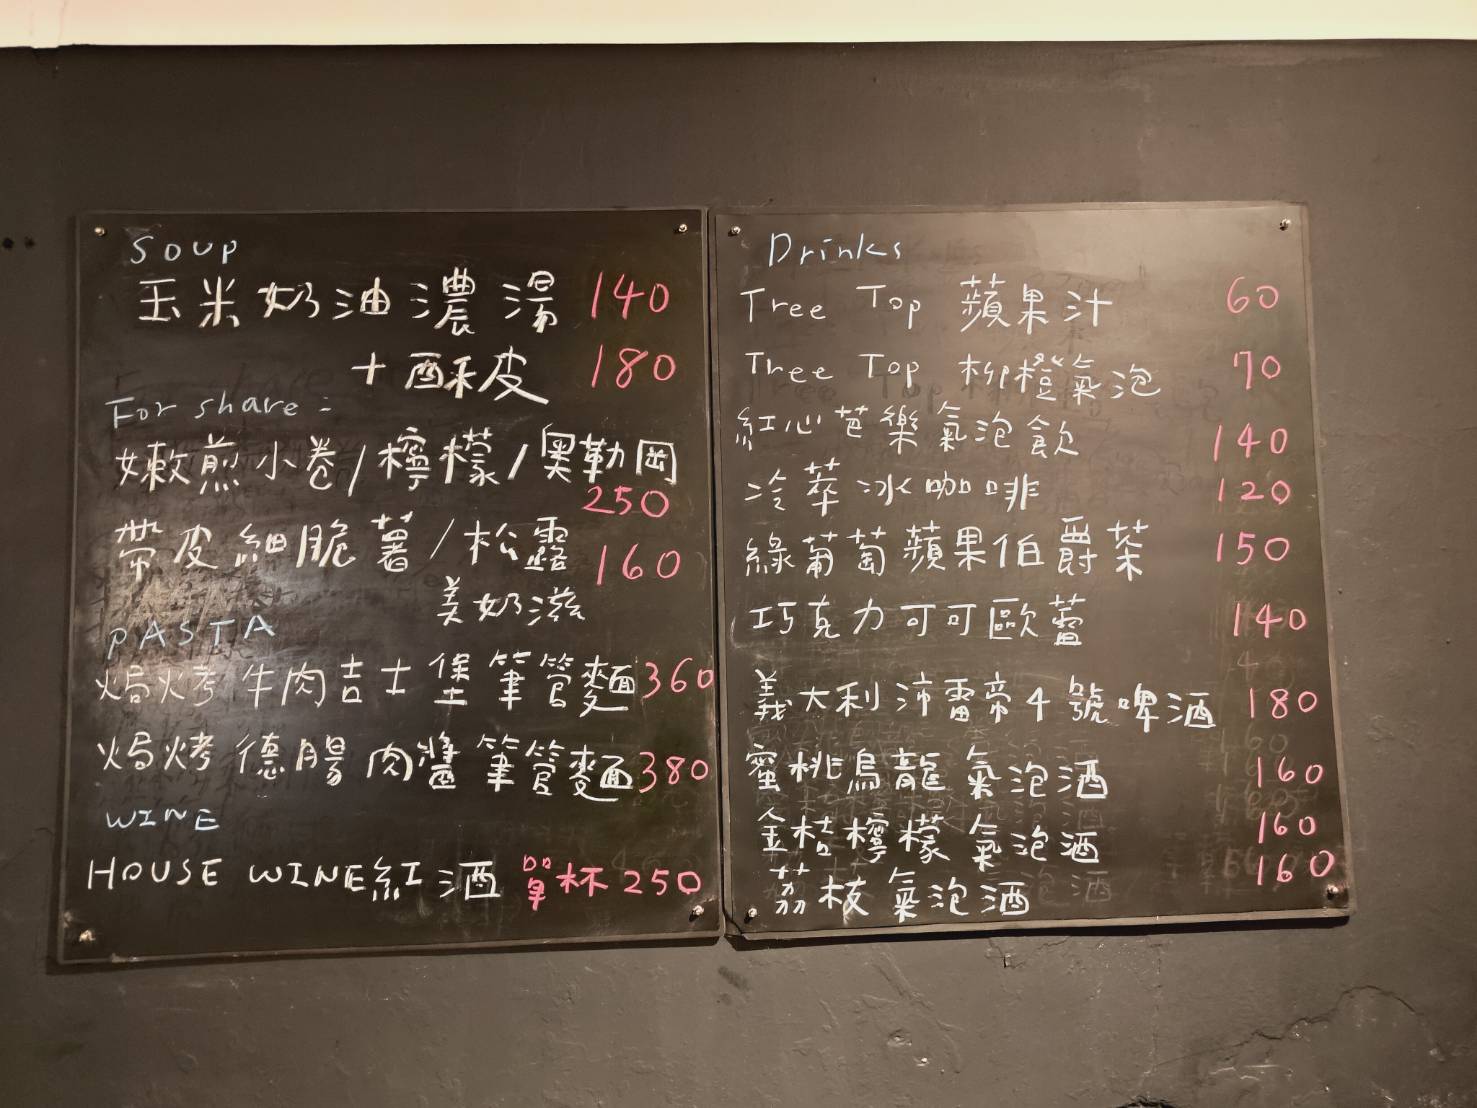 SOUP
玉米奶油濃湯 140
+酥皮 180
For share:
嫩煎小卷/檸檬/奧勒岡
250
帶皮細脆薯/松露 160
美奶滋
PASTA
焗烤牛肉吉士堡筆管麵 360
焗烤德腸肉醬筆管麵 380
WINE
HOUSE WINE紅酒 單杯 250
Drinks
Tree Top 蘋果汁 60
Tree Top 柳橙氣泡 70
紅心芭樂氣泡飲 140
冷萃冰咖啡 120
綠葡萄蘋果伯爵茶 150
巧克力可可歐蕾 140
義大利沛雷帝4號啤酒 180
蜜桃烏龍氣泡酒 160
金桔檸檬氣泡酒 160
荔枝氣泡酒 160